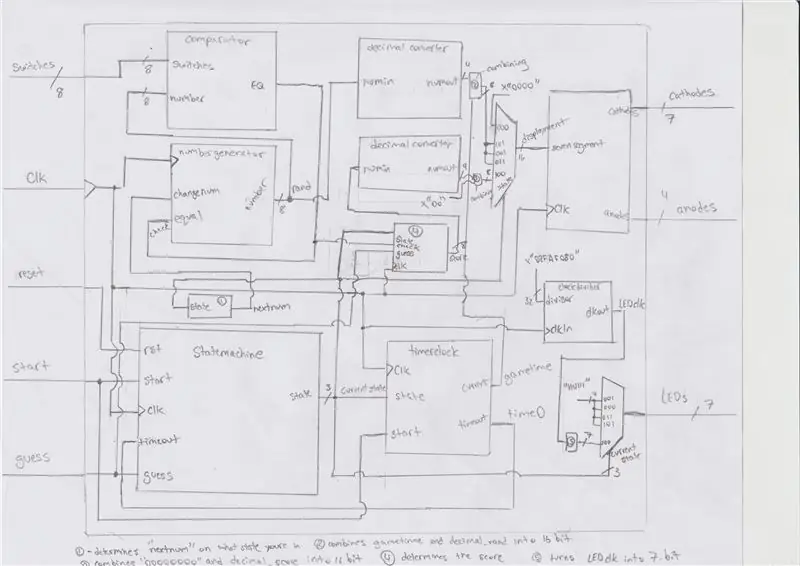 comparator
switches
8
number
8
EQ
decimal converter
numin
numout
4
combining
8
x"0000"
000
101
001
011
100
displaymont
16
seven segment
cathodes
Clk
anodes
switches
8
Cathodes
7
number generator
changenum
equal
check
number
8
rand
decimal converter
numin
numout
x"00"
8
combining
state
Clk
4
anodes
④
state
check
guess
Clk
score
reset
state ①
nextnum
x"S2FAF080"
32
clockdivider
divider
clkout
clkIn
LEDclk
Statemachine
rst
start
Clk
timeout
guess
state
3
currentstate
start
timerclock
Clk
state
start
current
timeout
gametime
time0
001
000
011
101
100
7
current state
3
LEDs
7
guess
①-determines "nextnum" on what state youre in ② combines gametime and decimal_rand into 16 bit
combines "00000000" and decimal_score into 16 bit ④ determines the score ⑤ turns LEDclk into 7-bit